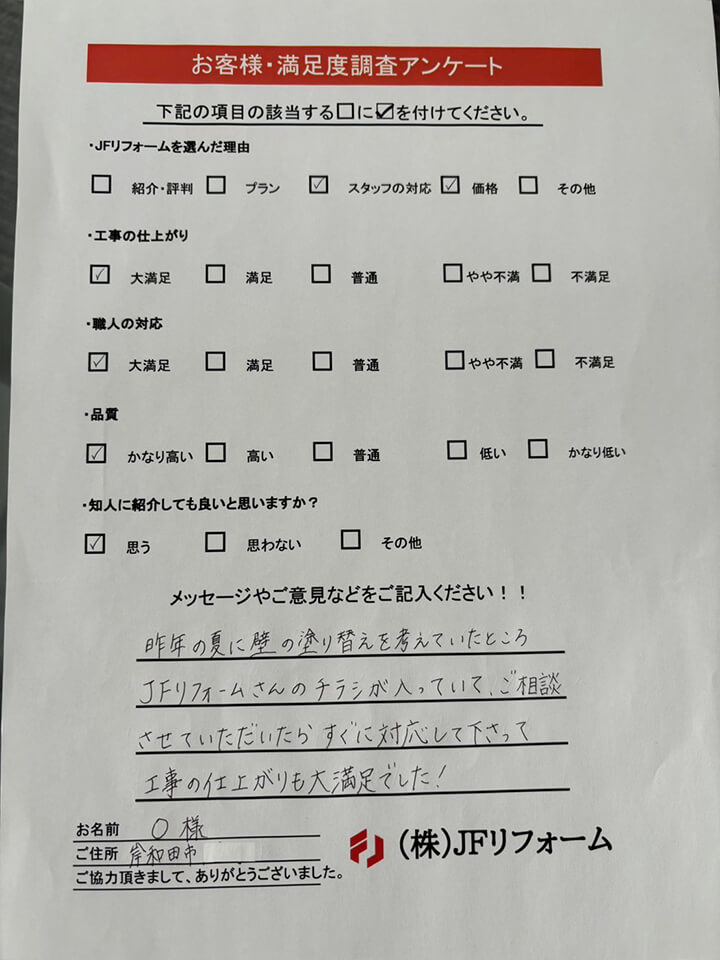 お客様・満足度調査アンケート
下記の項目の該当する☐に☑を付けてください。
・JFリフォームを選んだ理由
☐ 紹介・評判 ☐ プラン ☑ スタッフの対応 ☑ 価格 ☐ その他
・工事の仕上がり
☑ 大満足 ☐ 満足 ☐ 普通 ☐ やや不満 ☐ 不満足
・職人の対応
☑ 大満足 ☐ 満足 ☐ 普通 ☐ やや不満 ☐ 不満足
・品質
☑ かなり高い ☐ 高い ☐ 普通 ☐ 低い ☐ かなり低い
・知人に紹介しても良いと思いますか？
☑ 思う ☐ 思わない ☐ その他
メッセージやご意見などをご記入ください！！
昨年の夏に壁の塗り替えを考えていたところ
JFリフォームさんのチラシが入っていて、ご相談
させていただいたらすぐに対応して下さって
工事の仕上がりも大満足でした！
お名前 O 様
ご住所 岸和田市
ご協力頂きまして、ありがとうございました。
(株)JFリフォーム